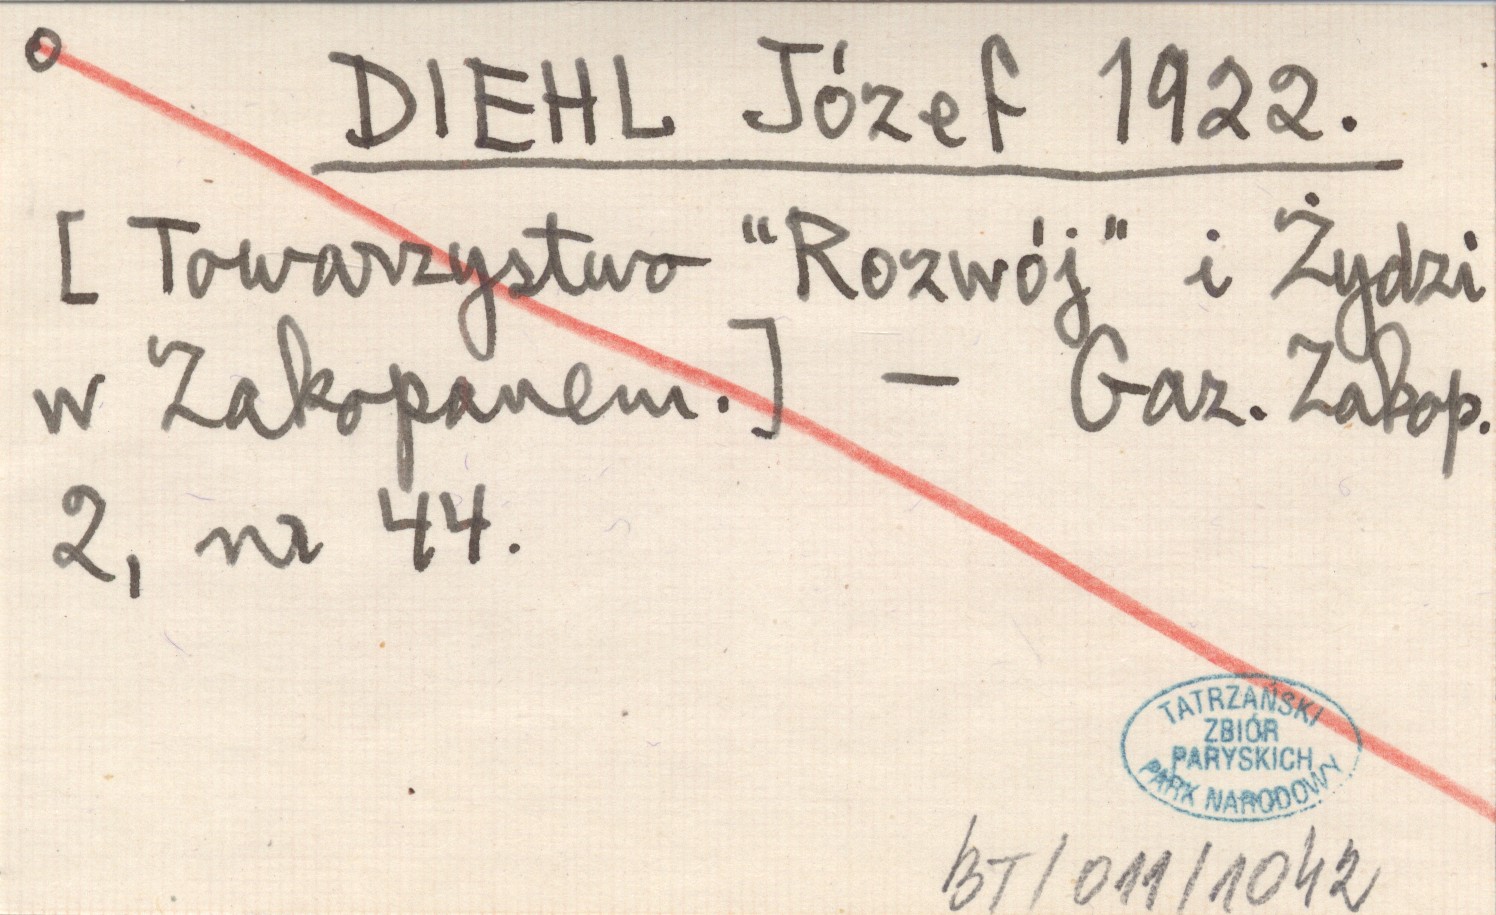 o
DIEHL Józef 1922.
[ Towarzystwo "Rozwój" i Żydzi
w Zakopanem.] — Gaz. Zakop.
2, nr 44.
TATRZAŃSKI
ZBIÓR
PARYSKICH
PARK NARODOWY
BT/011/1042